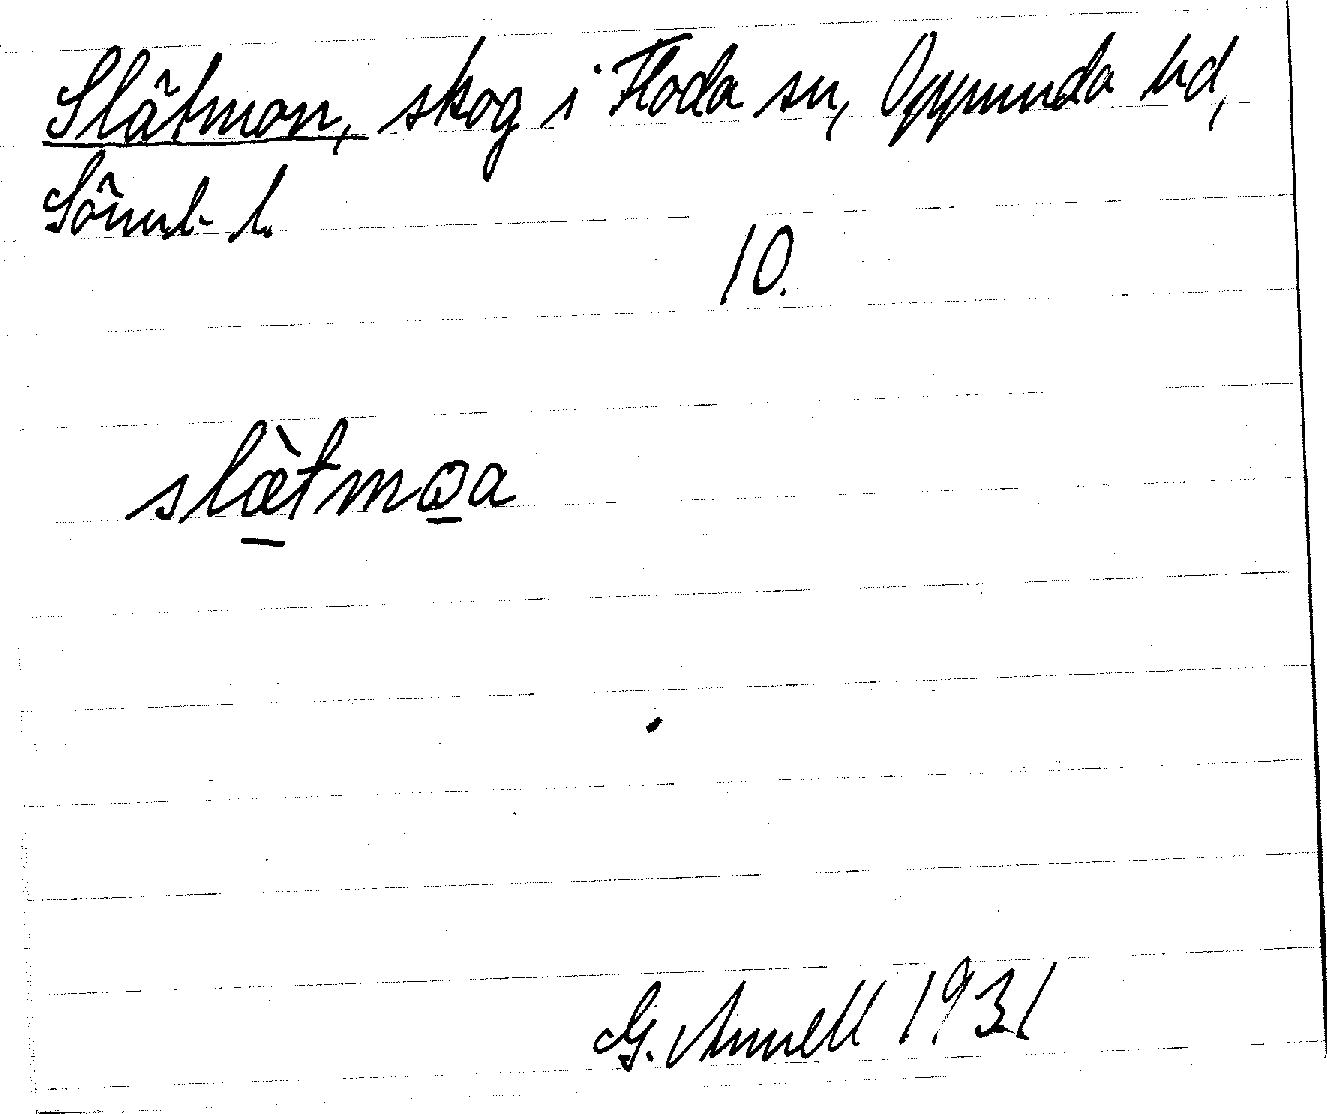 Slätmon, skog i Floda sn, Oppunda hd,
Sörml. l.
10.
slæ̀tmo̲a
G. Annell 1931